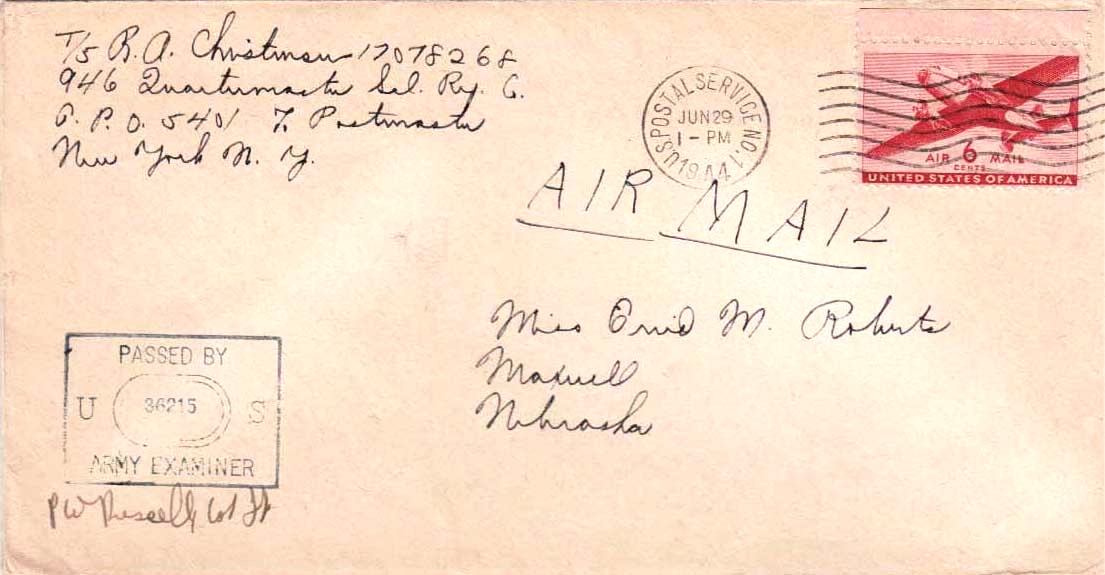 T/5 R. A. Christman 17078268
946 Quartermaster Sal. Rep. C.
A. P. O. 5401 % Postmaster
New York N. Y.
U.S. POSTAL SERVICE NO. 1
JUN 29
1 - PM
1944
AIR 6 MAIL
CENTS
UNITED STATES OF AMERICA
AIR MAIL
Miss Enid M. Roberts
Maxwell
Nebraska
PASSED BY
U 36215 S
ARMY EXAMINER
P W Russell 1st Lt